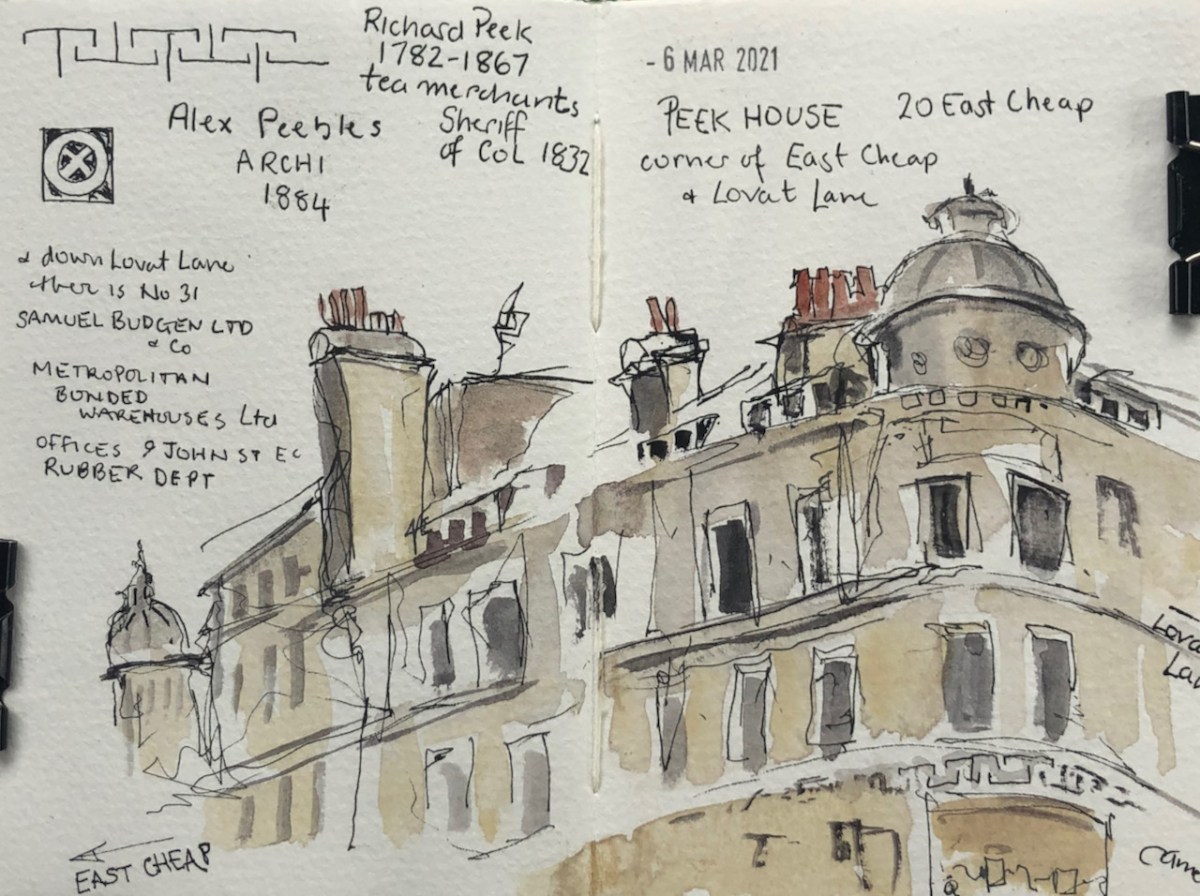 Richard Peek
1782-1867
tea merchants
Sheriff
of CoL 1832
Alex Peebles
ARCHI
1884
& down Lovat Lane
ther is No 31
SAMUEL BUDGEN LTD
& Co
METROPOLITAN
BONDED
WAREHOUSES Ltd
OFFICES 9 JOHN ST EC
RUBBER DEPT
EAST CHEAP
- 6 MAR 2021
PEEK HOUSE 20 East Cheap
corner of East Cheap
& Lovat Lane
Lova
Lan
came